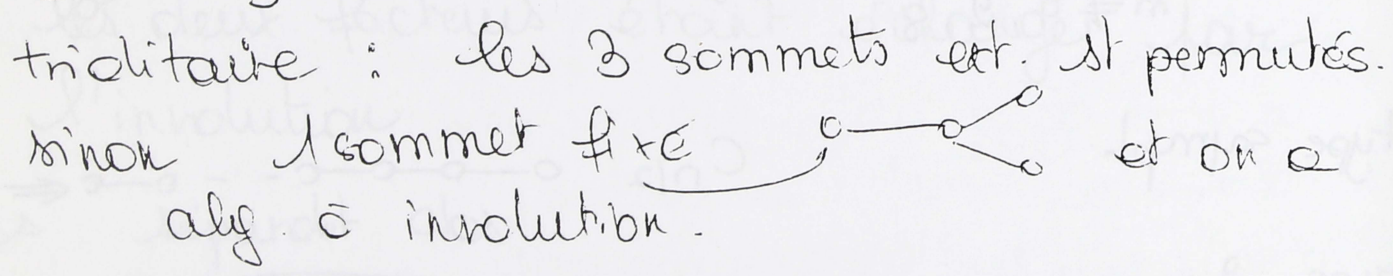 trialitaire : les 3 sommets ext. st permutés.
sinon 1 sommet fixé et on a
alg à involution.